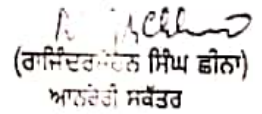 (ਰਾਜਿੰਦਰਮੋਹਨ ਸਿੰਘ ਛੀਨਾ)
ਆਨਰੇਰੀ ਸਕੱਤਰ